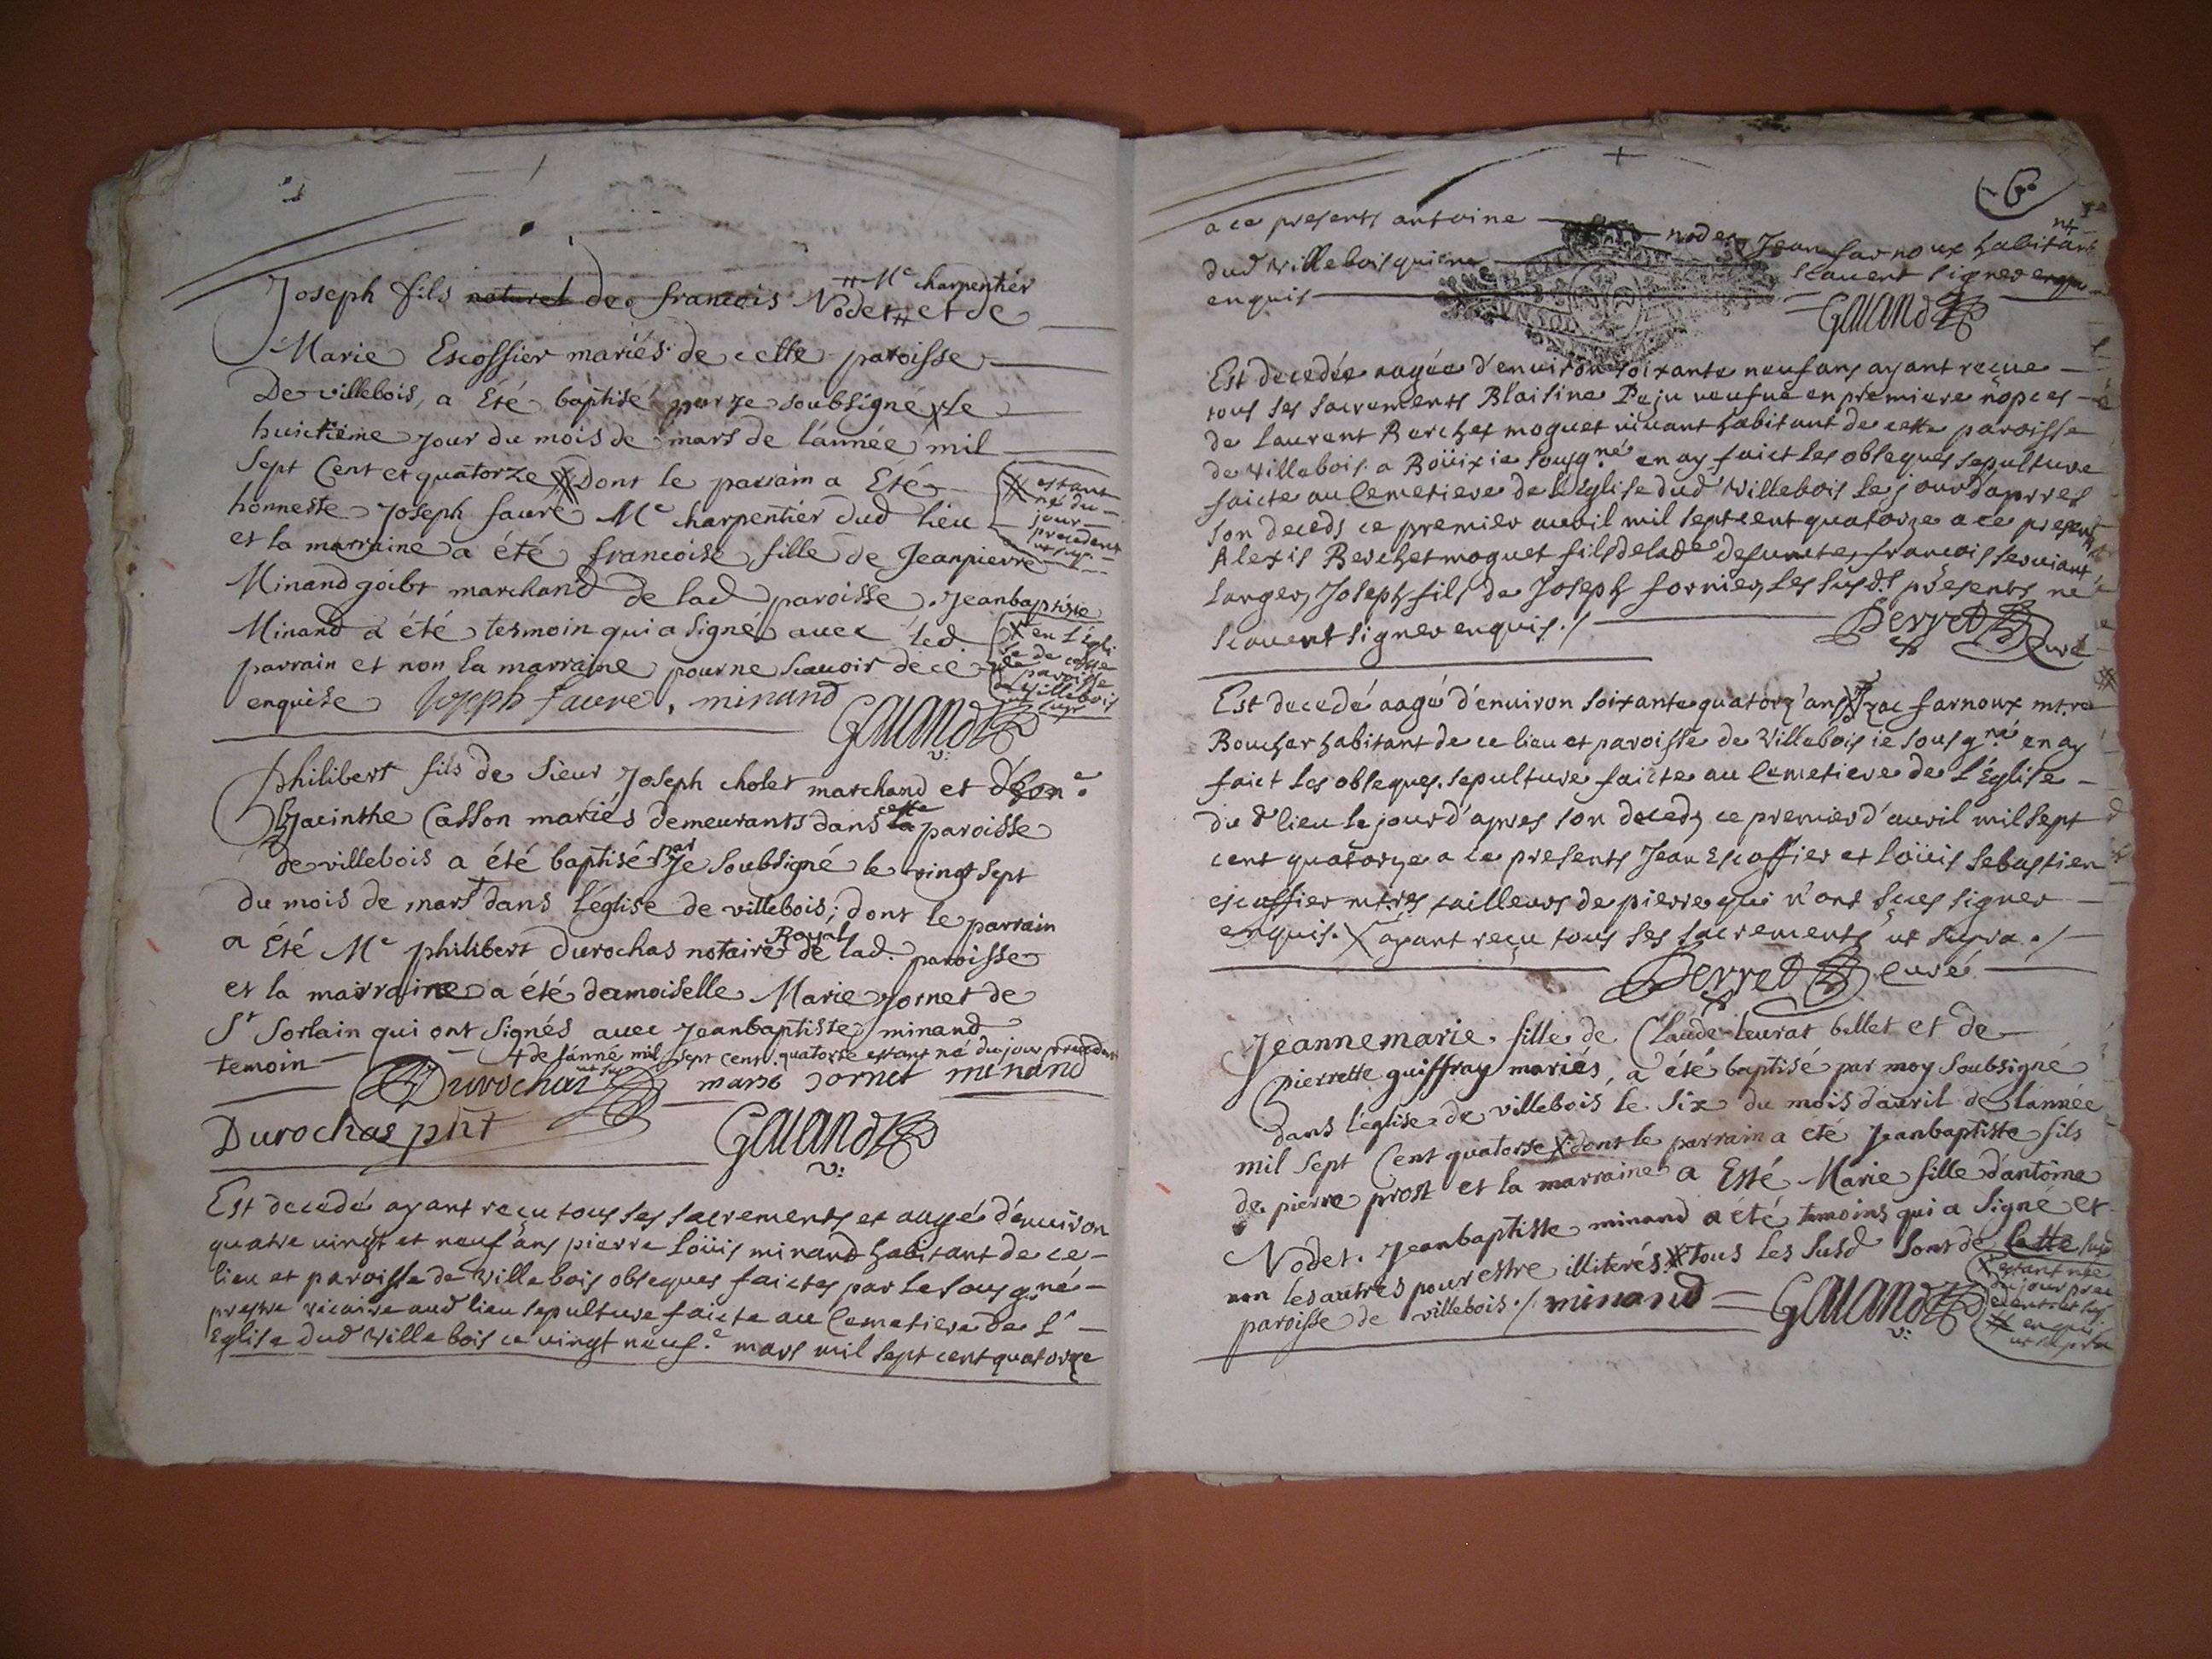 Joseph fils naturel de francois Nodet # et de
# Me charpentier
Marie Escossier mariés de cette paroisse
De villebois, a Eté baptisé par Je soubsigné X le
huictieme jour du mois de mars de l'année mil
Sept Cent et quatorze # Dont le parrain a Eté
# estant
né du
jour
precedent
ut sup.
honneste Joseph faure Me charpentier dud lieu
et la marraine a été francoise fille de Jeanpierre
Minand goibt marchand de lad paroisse. Jeanbaptiste
Minand a été tesmoin qui a signé avec led.
X en l'Egli
se de cette
paroisse
de villebois
ut supr
parrain et non la marraine pour ne scavoir de ce
enquise Joseph faure, minand
Galand
v:
Philibert fils de Sieur Joseph cholet marchand et d'hone
Hjacinthe Casson mariés demeurants dans la paroisse
cette
de villebois a été baptisé par Je soubsigné le vingt sept
du mois de mars + dans l'église de villebois; dont le parrain
a Eté Me philibert Durochas notaire Royal de lad. paroisse
et la marraine a été damoiselle Marie jornet de
St Sorlain qui ont signés avec jeanbaptiste minand
temoin + de l'anné mil sept cent quatorse estant né du jour precedent
ut sup
Durochas marie Jornet minand
Durochas pnt Galand
v:
Est decedé ayant reçu tous ses sacrements et aagé d'environ
quatre vingt et neuf ans pierre loüis minand habitant de ce
lieu et paroisse de Villebois obseques faictes par le sousgné
prestre vicaire aud lieu sepulture faicte au Cemetiere de l'
Eglise dud Villebois ce vingt neufe mars mil sept cent quatorze
6e
a ce presents antoine nodet, Jean farnoux habitant
dud Villebois qui ne scavent signer enquis
enquis
Galand
Est decedée aagée d'environ soixante neuf ans ayant reçue
tous ses sacrements Blaisine Deju veufue en premiere nopces
de laurent Berchet moguet vivant habitant de cette paroisse
de Villebois a Boüix ie sousgné en ay faict les obseques sepulture
faicte au Cemetiere de l'Eglise dud Villebois le jour d'apres
son deceds ce premier avril mil sept cent quatorze a ce presents
Alexis Berchet moguet fils de lade defuncte, françois serviant
larger, Joseph fils de Joseph fornier, les susds presents ne
scavent signer enquis ./ Perret Curé
Est decedé aagé d'environ soixante quatorz'ans X Izac farnoux mtre
Boucher habitant de ce lieu et paroisse de Villebois ie sousgné en ay
faict les obseques. sepulture faicte au Cemetiere de l'Eglise
du d lieu le jour d'apres son deceds ce premier d'avril mil sept
cent quatorze a ce presents Jean Escoffier et loüis Sebastien
escoffier mtres tailleurs de pierre qui n'ont sçus signer
enquis. X ayant reçu tous ses sacrements ut supra ./
Perret curé
Jeannemarie fille de Claude leurat bellet et de
pierrette guiffray mariés, a été baptisé par moy soubsigné
dans l'église de villebois le six du mois d'avril de l'année
mil sept Cent quatorse X dont le parrain a eté Jeanbaptiste fils
de pierre prost et la marraine a Esté Marie fille d'antoine
Nodet. Jeanbaptiste minand a été temoins qui a signé et
non les autres pour estre illiterés # tous les susd sont de Cette susd
paroisse de villebois ./ minand Galand
v:
X estant née
du jour prec
edent ut sup
# enquis
ut supra